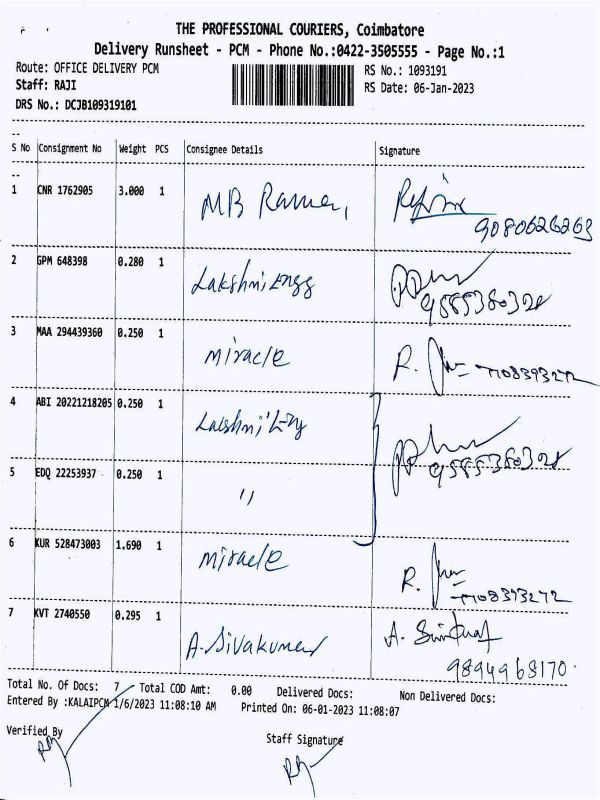 THE PROFESSIONAL COURIERS, Coimbatore
Delivery Runsheet - PCM - Phone No.:0422-3505555 - Page No.:1
Route: OFFICE DELIVERY PCM
RS No.: 1093191
Staff: RAJI
RS Date: 06-Jan-2023
DRS No.: DCJB109319101
S No Consignment No Weight PCS Consignee Details Signature
1 CNR 1762905 3.000 1 MB
9080626263
2 GPM 648398 0.280 1 Lakshmi Engg
9585380328
3 MAA 294439360 0.250 1 miracle R. 7708393272
4 ABI 20221218205 0.250 1 Lakshmi
9585380328
5 EDQ 22253937 0.250 1 "
6 KUR 528473003 1.690 1 miracle R.
7708393272
7 KVT 2740550 0.295 1 A. Sivakumar A.
9894968170
Total No. Of Docs: 7 Total COD Amt: 0.00 Delivered Docs: Non Delivered Docs:
Entered By :KALAIPCM 1/6/2023 11:08:10 AM Printed On: 06-01-2023 11:08:07
Verified By
Staff Signature